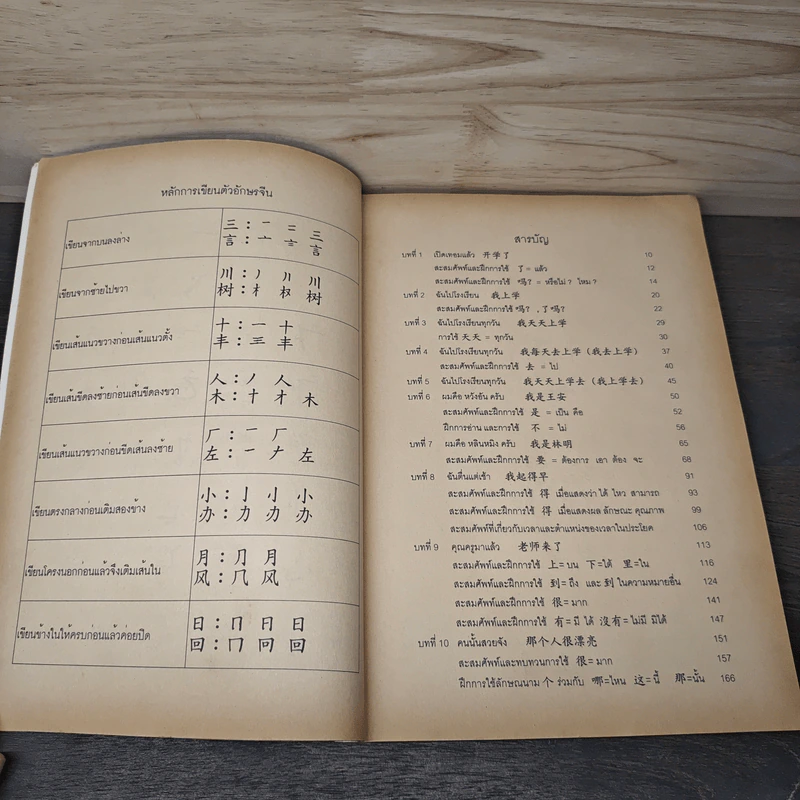 หลักการเขียนตัวอักษรจีน
เขียนจากบนลงล่าง
三 : 一 二 三
言 : 亠 言
เขียนจากซ้ายไปขวา
川 : 丿 川
树 : 木 权 树
เขียนเส้นแนวขวางก่อนเส้นแนวตั้ง
十 : 一 十
丰 : 三 丰
เขียนเส้นขีดลงซ้ายก่อนเส้นขีดลงขวา
人 : 丿 人
木 : 十 才 木
เขียนเส้นแนวขวางก่อนขีดเส้นลงซ้าย
厂 : 一 厂
左 : 一 ナ 左
เขียนตรงกลางก่อนเติมสองข้าง
小 : 亅 小
办 : 力 办
เขียนโครงนอกก่อนแล้วจึงเติมเส้นใน
月 : 冂 月
风 : 几 风
เขียนข้างในให้ครบก่อนแล้วค่อยปิด
日 : 冂 日
回 : 冂 回
สารบัญ
บทที่ 1 เปิดเทอมแล้ว 开学了 10
สะสมศัพท์และฝึกการใช้ 了 = แล้ว 12
สะสมศัพท์และฝึกการใช้ 吗? = หรือไม่ ? ไหม ? 14
บทที่ 2 ฉันไปโรงเรียน 我上学 20
สะสมศัพท์และฝึกการใช้ 吗? , 了吗? 22
บทที่ 3 ฉันไปโรงเรียนทุกวัน 我天天上学 29
การใช้ 天天 = ทุกวัน 30
บทที่ 4 ฉันไปโรงเรียนทุกวัน 我每天去上学 (我去上学) 37
สะสมศัพท์และฝึกการใช้ 去 = ไป 40
บทที่ 5 ฉันไปโรงเรียนทุกวัน 我天天上学去 (我上学去) 45
บทที่ 6 ผมคือ หวังอัน ครับ 我是王安 50
สะสมศัพท์และฝึกการใช้ 是 = เป็น คือ 52
ฝึกการอ่าน และการใช้ 不 = ไม่ 56
บทที่ 7 ผมคือ หลินหมิง ครับ 我是林明 65
สะสมศัพท์และฝึกการใช้ 要 = ต้องการ เอา ต้อง จะ 68
บทที่ 8 ฉันตื่นแต่เช้า 我起得早 91
สะสมศัพท์และฝึกการใช้ 得 เมื่อแสดงว่า ได้ ไหว สามารถ 93
สะสมศัพท์และฝึกการใช้ 得 เมื่อแสดงผล ลักษณะ คุณภาพ 99
สะสมศัพท์ที่เกี่ยวกับเวลาและตำแหน่งของเวลาในประโยค 106
บทที่ 9 คุณครูมาแล้ว 老师来了 113
สะสมศัพท์และฝึกการใช้ 上= บน 下=ใต้ 里=ใน 116
สะสมศัพท์และฝึกการใช้ 到=ถึง และ 到 ในความหมายอื่น 124
สะสมศัพท์และฝึกการใช้ 很=มาก 141
สะสมศัพท์และฝึกการใช้ 有=มี ได้ 没有=ไม่มี มิได้ 147
บทที่ 10 คนนั้นสวยจัง 那个人很漂亮 151
สะสมศัพท์และทบทวนการใช้ 很=มาก 157
ฝึกการใช้ลักษณนาม 个 ร่วมกับ 哪=ไหน 这=นี้ 那=นั้น 166